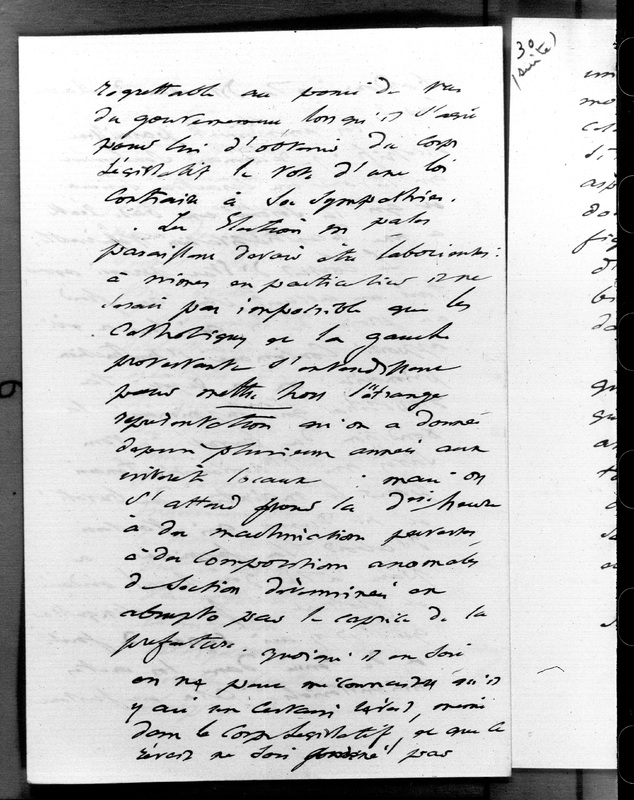 regrettable au point de vue
du gouvernement lorsqu'il s'agit
pour lui d'obtenir du Corps
Législatif le vote d'une loi
contraire à ses sympathies.
. Les Elections en
paraissent devoir être laborieuses :
à nimes en particulier il ne
serait pas impossible que les
Catholiques et la gauche
protestante s'entendissent
pour mettre hors l'étrange
représentation qu'on a donnée
depuis plusieurs années aux
intérêts locaux : mais on
s'attend pour la dre heure
à des machinations perverses,
à des compositions anomales
de section déterminées ex
abrupto par le caprice de la
préfecture. quoiqu'il en soit
on ne peut méconnaitre qu'il
y ait un certain réveil, même
dans le Corps Législatif, et que ce
réveil ne soit pas
30
(suite)